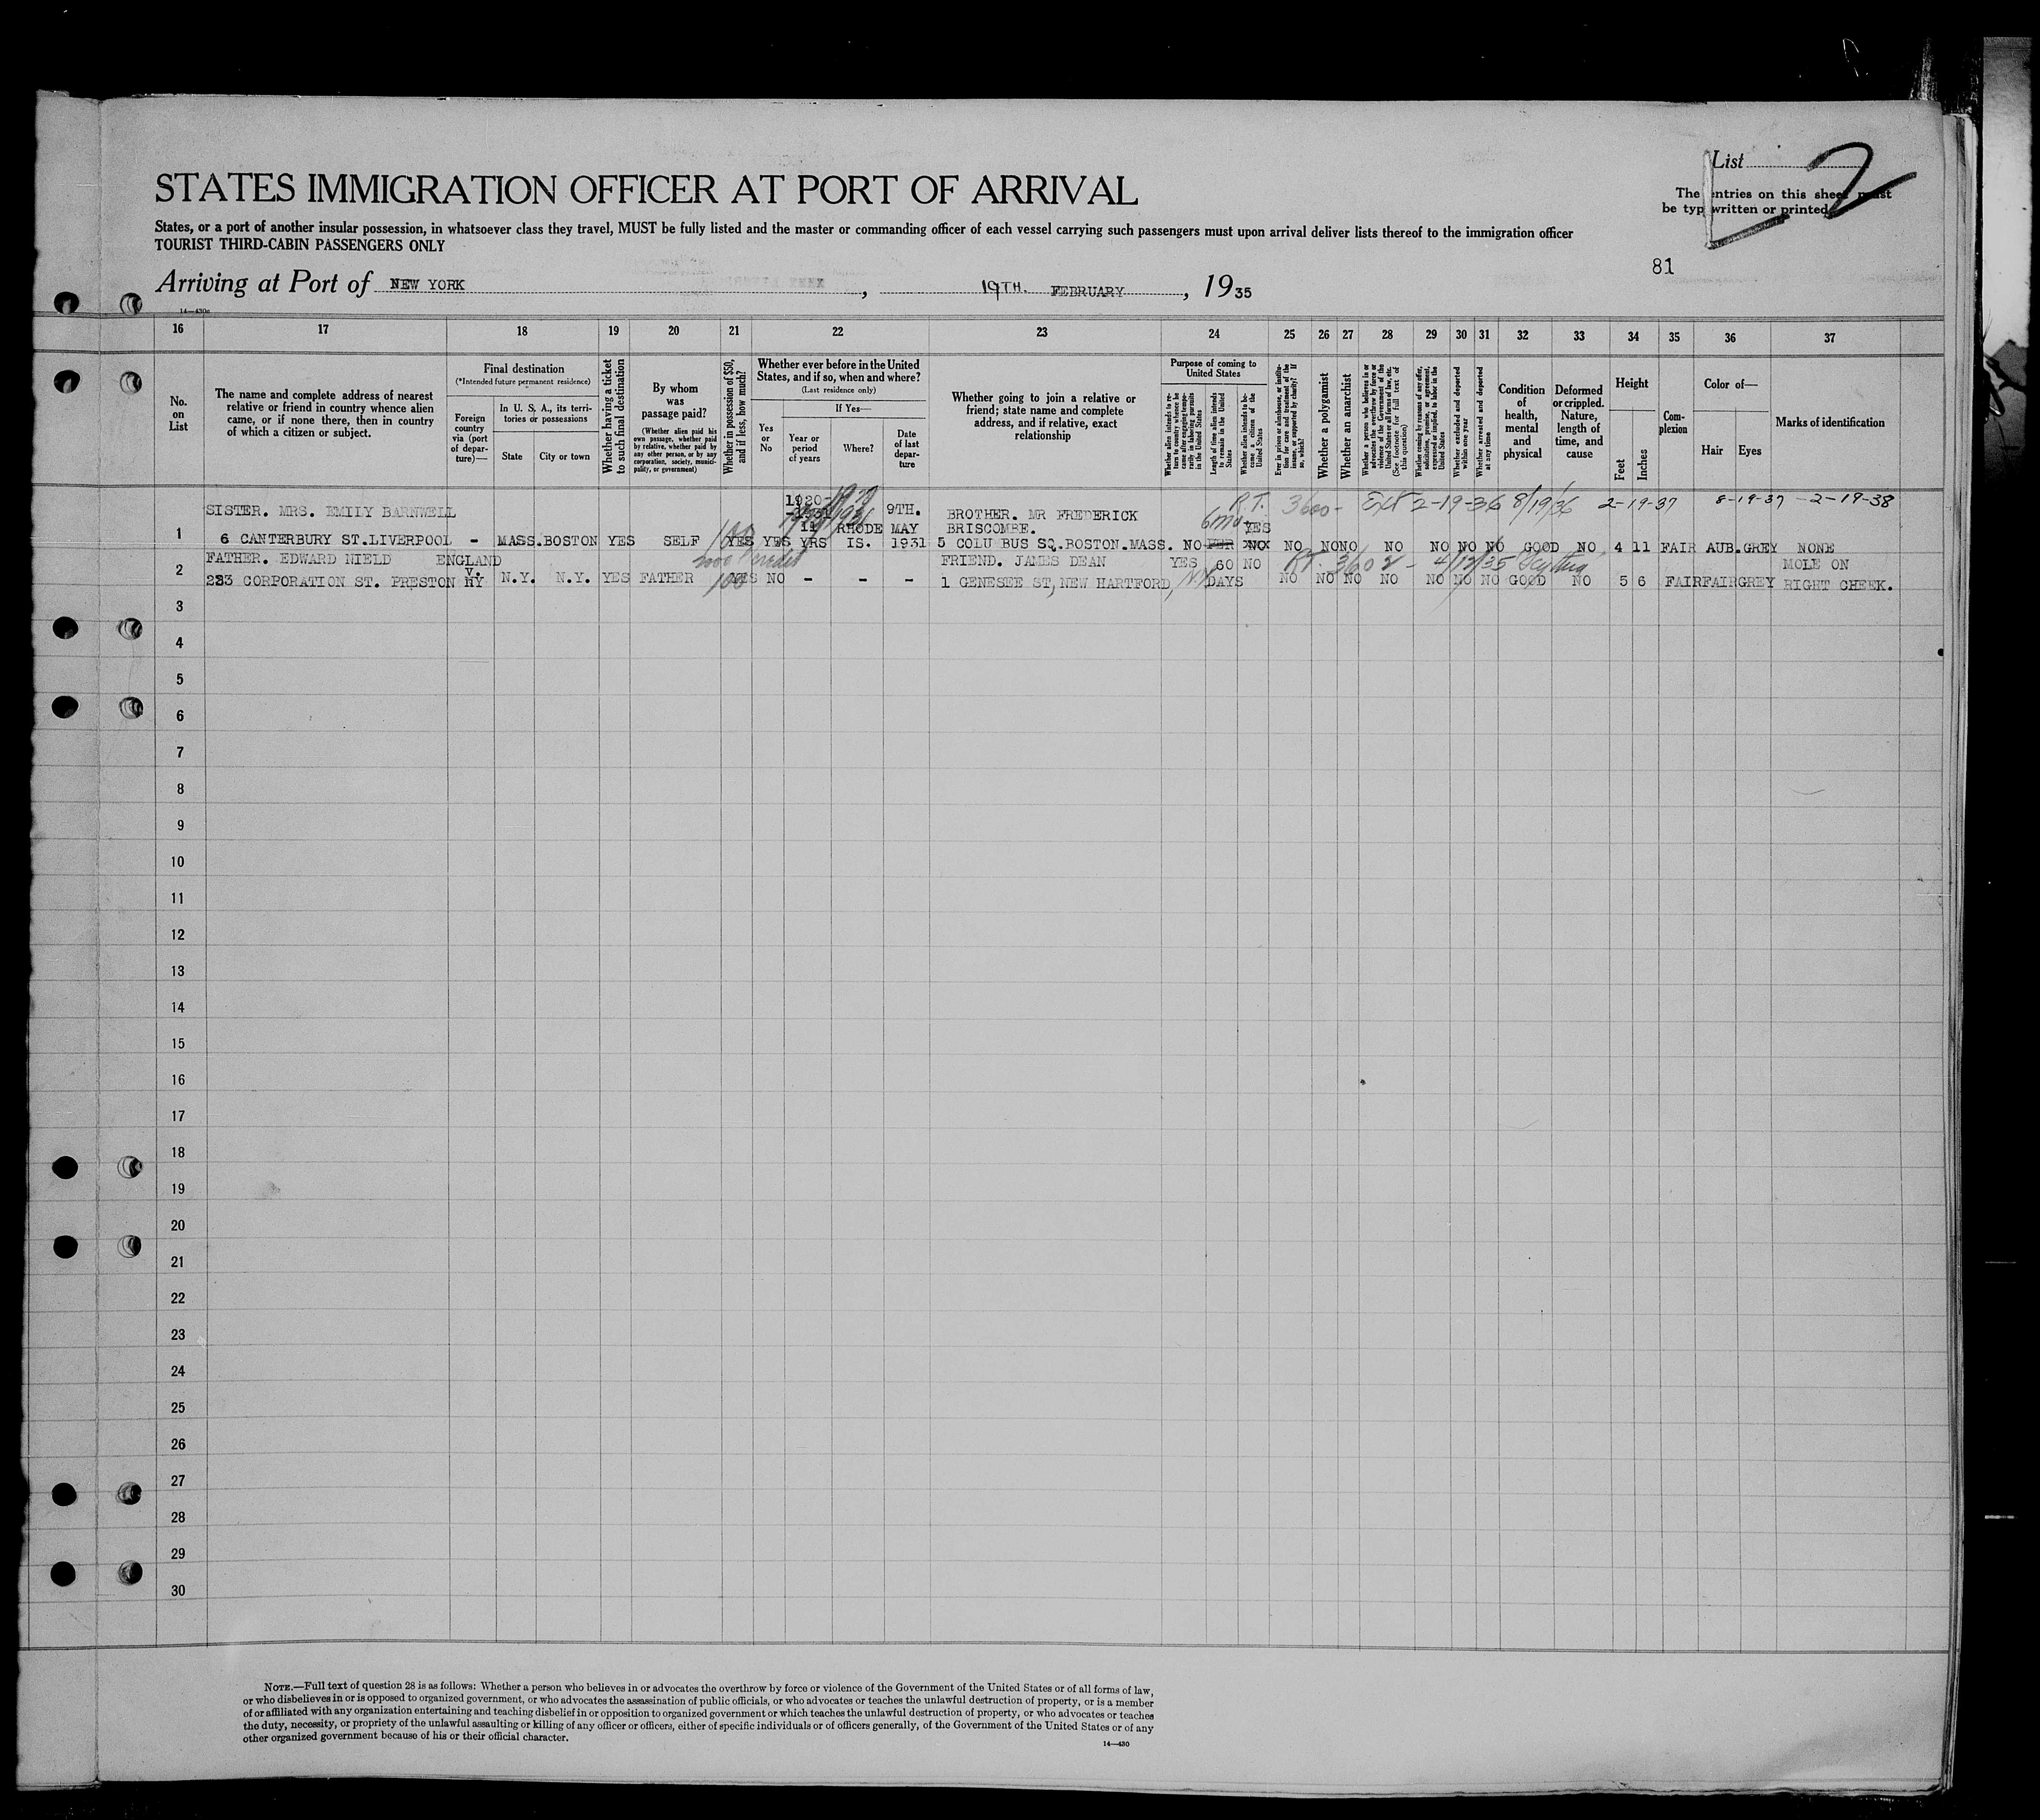 List 2
STATES IMMIGRATION OFFICER AT PORT OF ARRIVAL
The entries on this sheet must
be typewritten or printed
States, or a port of another insular possession, in whatsoever class they travel, MUST be fully listed and the master or commanding officer of each vessel carrying such passengers must upon arrival deliver lists thereof to the immigration officer
TOURIST THIRD-CABIN PASSENGERS ONLY
81
Arriving at Port of NEW YORK, 19TH. FEBRUARY, 1935
14—430c
16 17 18 19 20 21 22 23 24 25 26 27 28 29 30 31 32 33 34 35 36 37
No. on List
The name and complete address of nearest
relative or friend in country whence alien
came, or if none there, then in country
of which a citizen or subject.
Final destination
(*Intended future permanent residence)
Foreign country via (port of departure)—
In U. S. A., its territories or possessions
State
City or town
Whether having a ticket to such final destination
By whom was passage paid?
(Whether alien paid his own passage, whether paid by relative, whether paid by any other person, or by any corporation, society, municipality, or government)
Whether in possession of $50, and if less, how much?
Whether ever before in the United
States, and if so, when and where?
(Last residence only)
Yes or No
If Yes—
Year or period of years
Where?
Date of last departure
Whether going to join a relative or
friend; state name and complete
address, and if relative, exact
relationship
Purpose of coming to United States
Whether alien intends to return to country whence he came after engaging temporarily in laboring pursuits in the United States
Length of time alien intends to remain in the United States
Whether alien intends to become a citizen of the United States
Ever in prison or almshouse, or institution for care and treatment of the insane, or supported by charity? If so, which?
Whether a polygamist
Whether an anarchist
Whether a person who believes in or advocates the overthrow by force or violence of the Government of the United States or all forms of law, etc. (See footnote for full text of this question)
Whether coming by reasons of any offer, solicitation, promise, or agreement, expressed or implied, to labor in the United States
Whether excluded and deported within one year
Whether arrested and deported at any time
Condition of health, mental and physical
Deformed or crippled. Nature, length of time, and cause
Height
Feet
Inches
Complexion
Color of—
Hair
Eyes
Marks of identification
1930- 9TH. R.T. 3600- Ext 2-19-36 8/19/36 2-19-37 8-19-37 -2-19-38
SISTER. MRS. EMILY BARNWELL -1931 BROTHER. MR FREDERICK
11 RHODE MAY BRISCOMBE. 6mo YES
1 6 CANTERBURY ST.LIVERPOOL - MASS.BOSTON YES SELF 100 YES YES YRS IS. 1931 5 COLU BUS SQ.BOSTON.MASS. NO NO NO NO NO NO NO NO GOOD NO 4 11 FAIR AUB.GREY NONE
FATHER. EDWARD NIELD ENGLAND FRIEND. JAMES DEAN YES 60 NO RT. 3602 - 4/12/35 Scythia MOLE ON
2 223 CORPORATION ST. PRESTON N.Y. N.Y. YES FATHER 100 YES NO - - - 1 GENESEE ST, NEW HARTFORD, NY DAYS NO NO NO NO NO NO NO GOOD NO 5 6 FAIR FAIR GREY RIGHT CHEEK.
3
4
5
6
7
8
9
10
11
12
13
14
15
16
17
18
19
20
21
22
23
24
25
26
27
28
29
30
NOTE.—Full text of question 28 is as follows: Whether a person who believes in or advocates the overthrow by force or violence of the Government of the United States or of all forms of law,
or who disbelieves in or is opposed to organized government, or who advocates the assassination of public officials, or who advocates or teaches the unlawful destruction of property, or is a member
of or affiliated with any organization entertaining and teaching disbelief in or opposition to organized government or which teaches the unlawful destruction of property, or who advocates or teaches
the duty, necessity, or propriety of the unlawful assaulting or killing of any officer or officers, either of specific individuals or of officers generally, of the Government of the United States or of any
other organized government because of his or their official character.
14—430